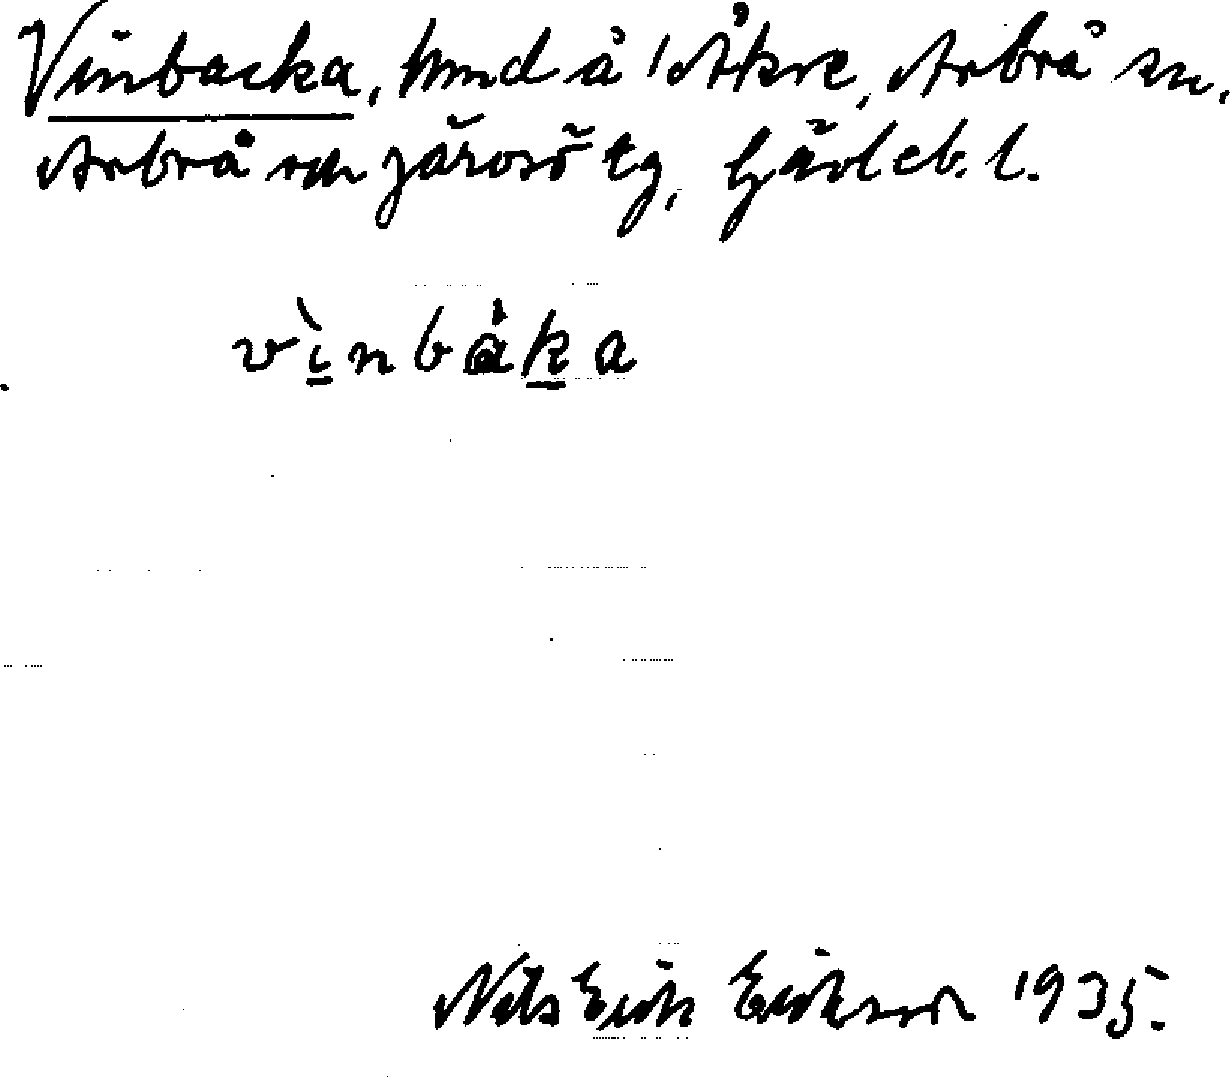 Vinbacka, lund å 1 Åkre, Arbrå sn.
Arbrå och Järvsö tg, Gävleb. l.
vìnbàka
Nils Erik Eriksson 1935.